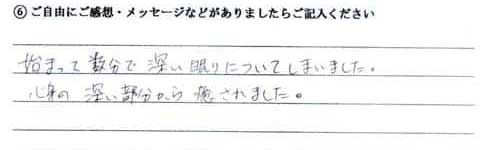 ⑥ご自由にご感想・メッセージなどがありましたらご記入ください
始まって数分で深い眠りについてしまいました。
心身の深い部分から癒されました。